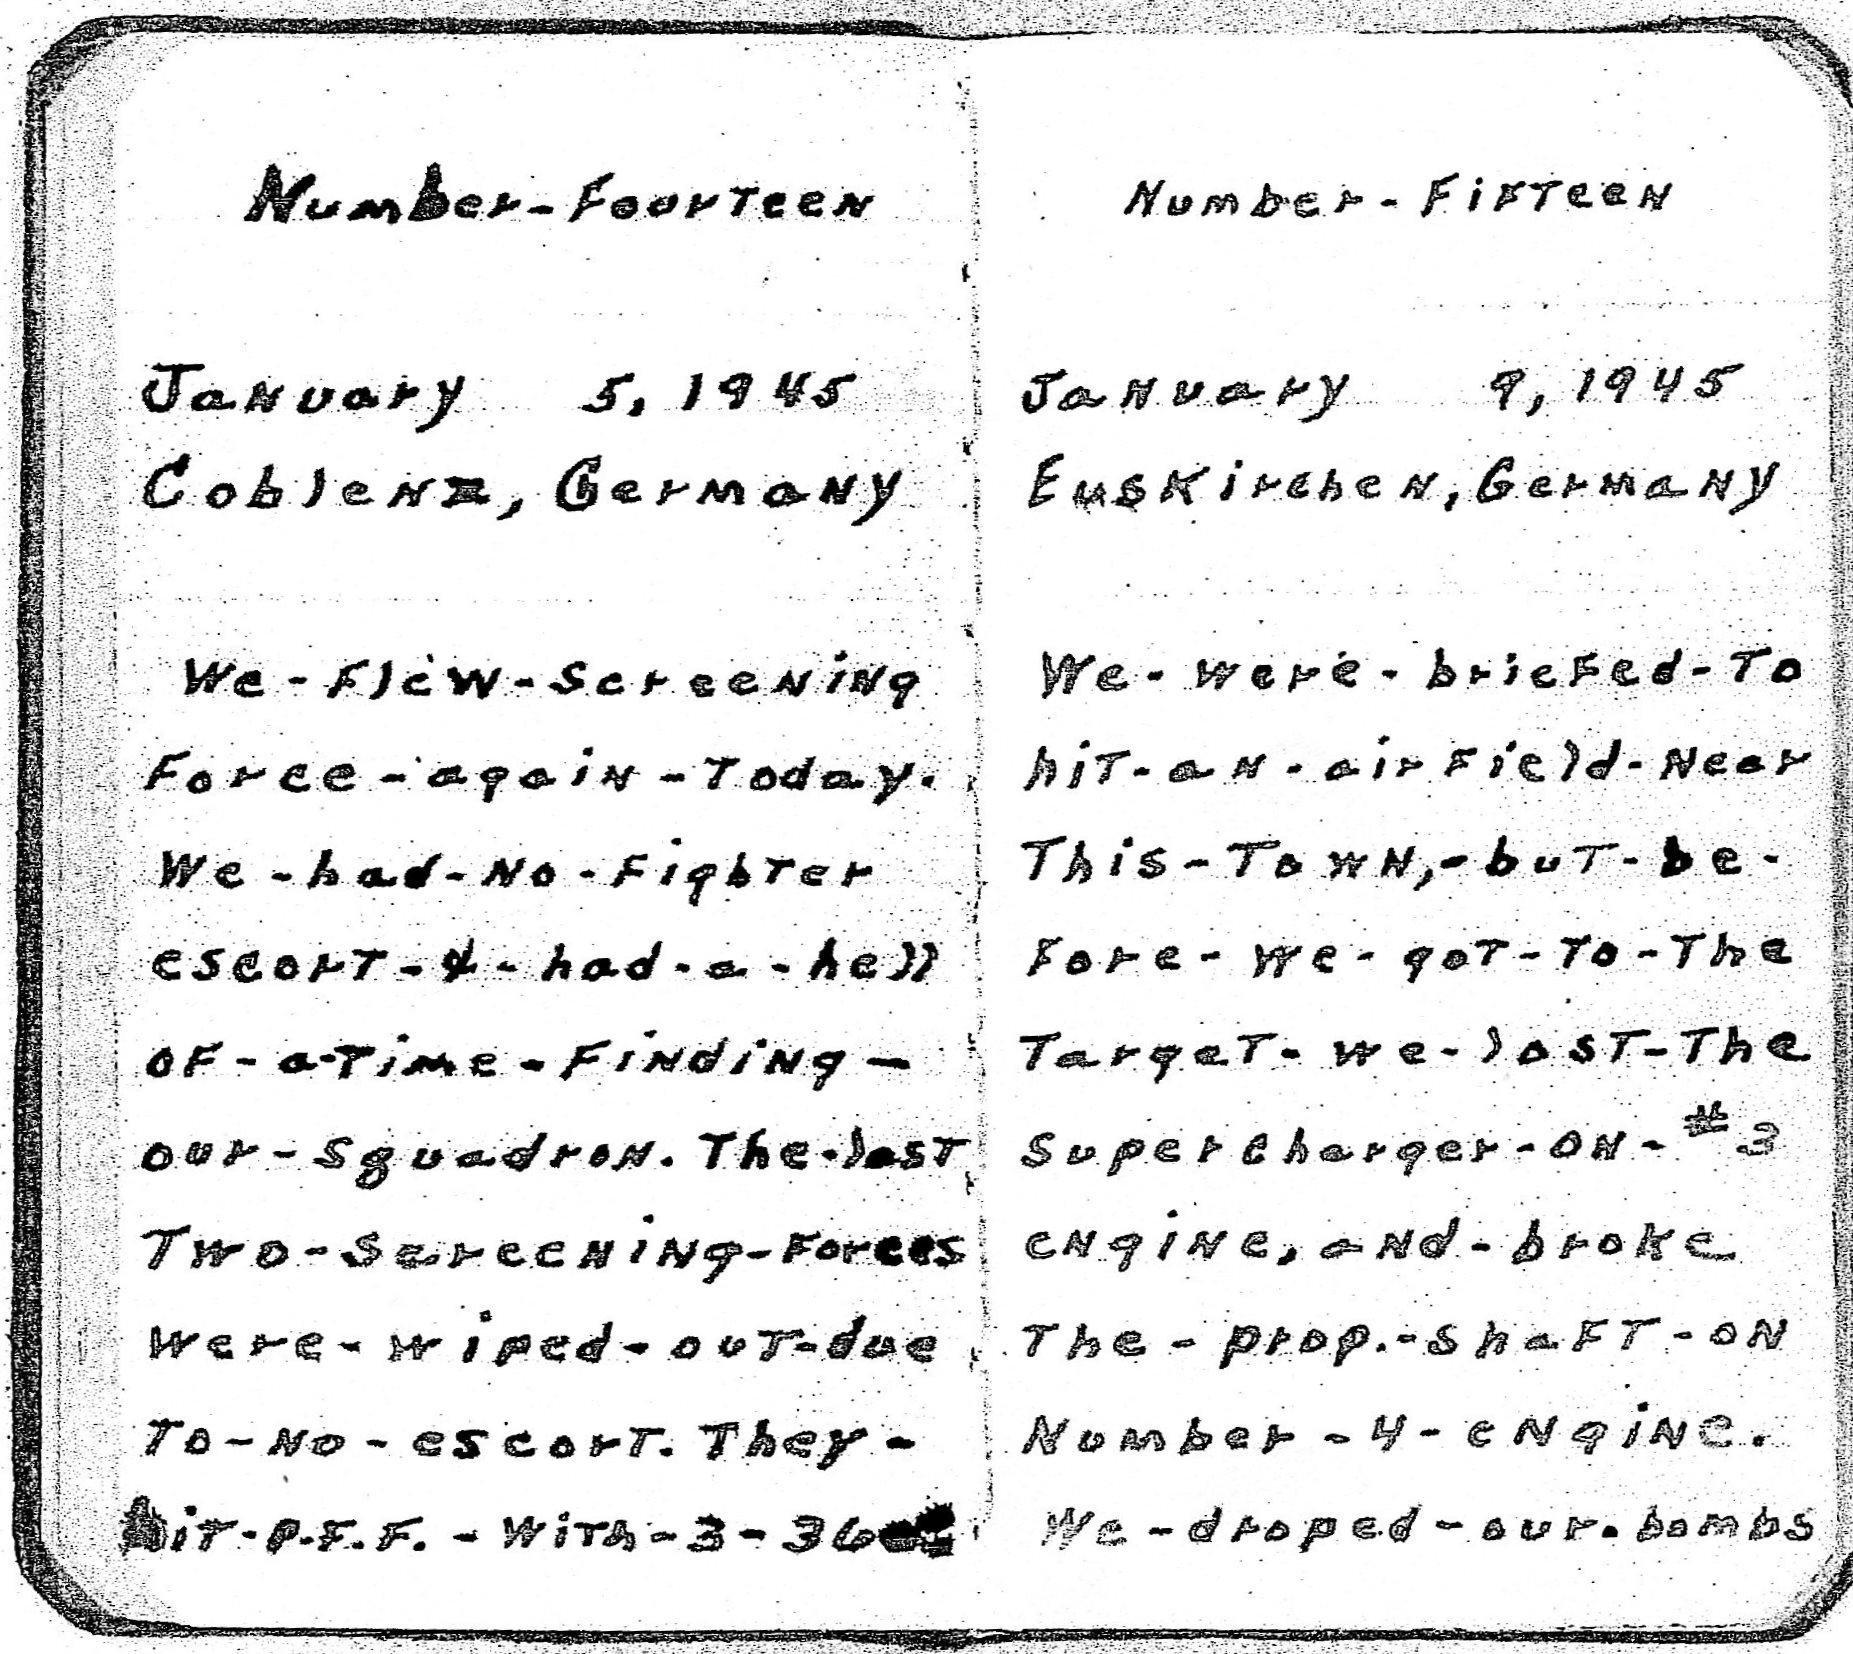 Number-Fourteen
January 5, 1945
Coblenz, Germany
We-Flew-Screening
Force-again-Today.
We-had-No-Fighter
escorT-&-had-a-hell
OF-a-Time-Finding-
our-Squadron. The-last
Two-Screening-Forces
Were-wiped-ouT-due
To-No-escorT. They-
hit-P.F.F.-With-3-360
Number-FifTeen
January 9, 1945
Euskirchen, Germany
We-were-briefed-To
hiT-an-airField-Near
This-Town,-buT-be-
Fore-we-goT-To-The
TargeT-we-losT-The
Supercharger-ON-#3
engine, and-broke
The-prop.-shaFT-ON
Number-4-engine.
We-droped-our-bombs